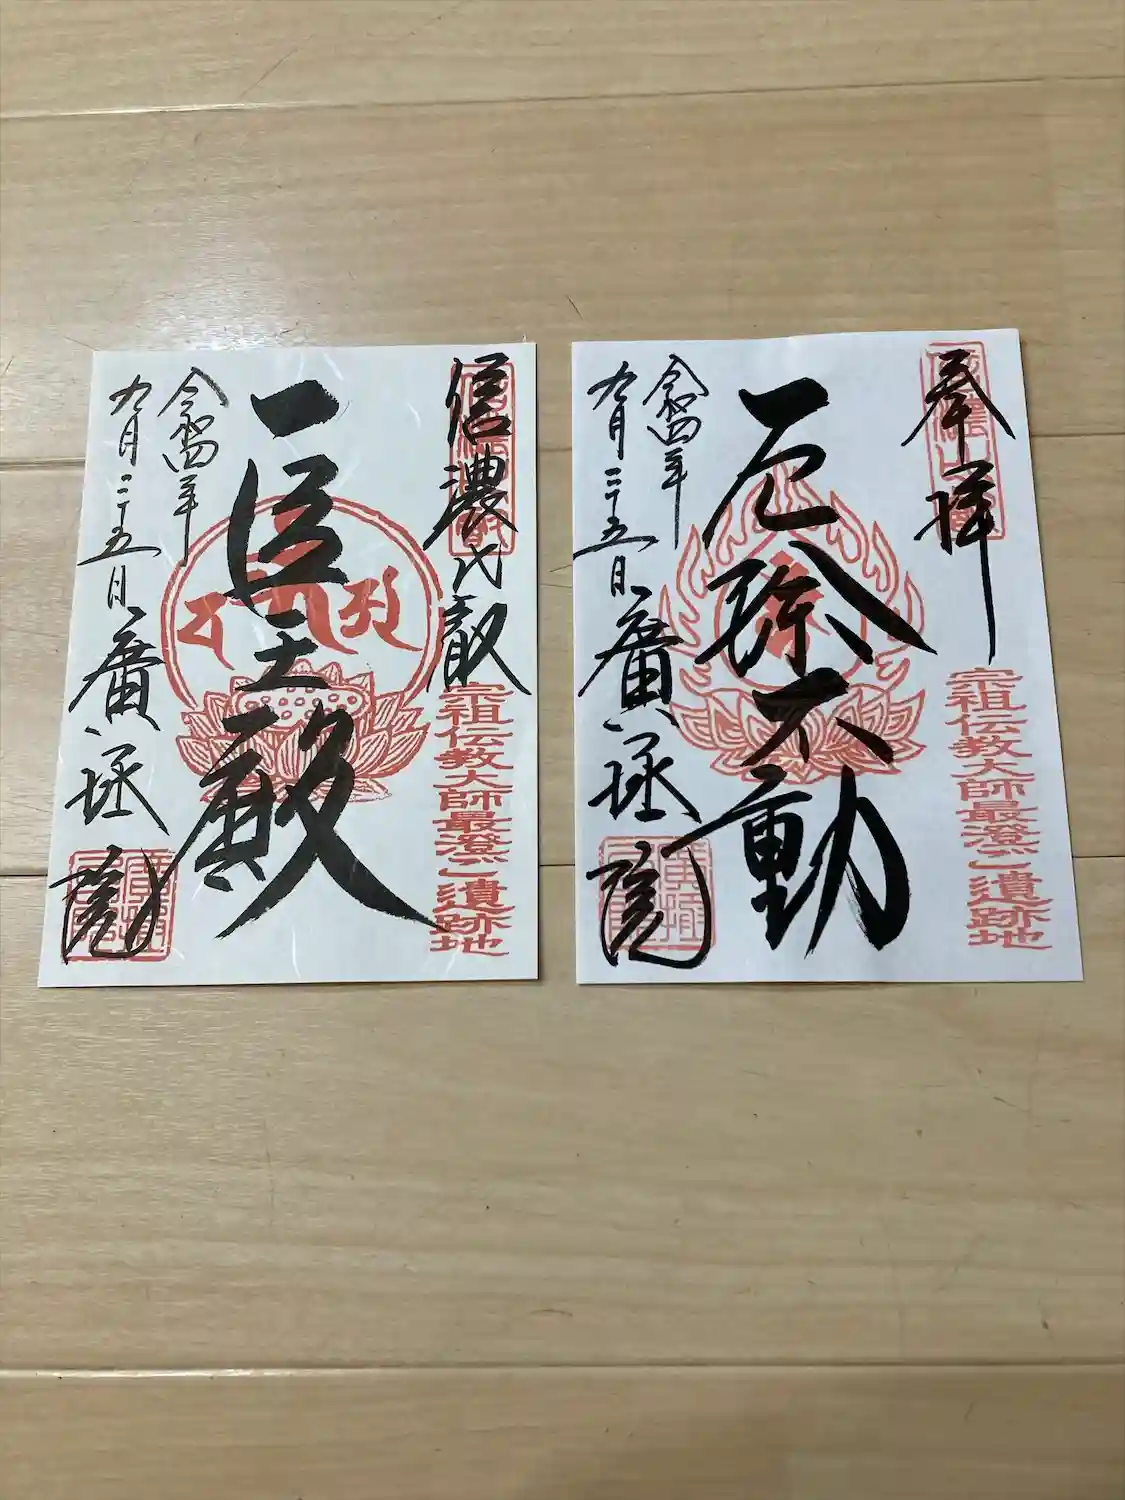 奉拝
宗祖伝教大師最澄ご遺跡地
厄除不動
令和四年
九月二十五日
廣拯院
信濃比叡
宗祖伝教大師最澄ご遺跡地
医王殿
令和四年
九月二十五日
廣拯院